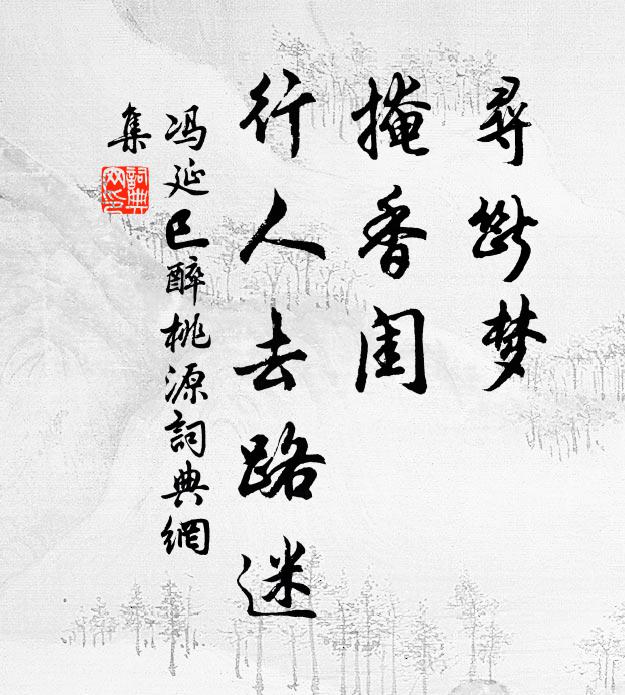 尋断梦
掩香闺
行人去路迷
冯延巳醉桃源詞典網
集
詞典网印